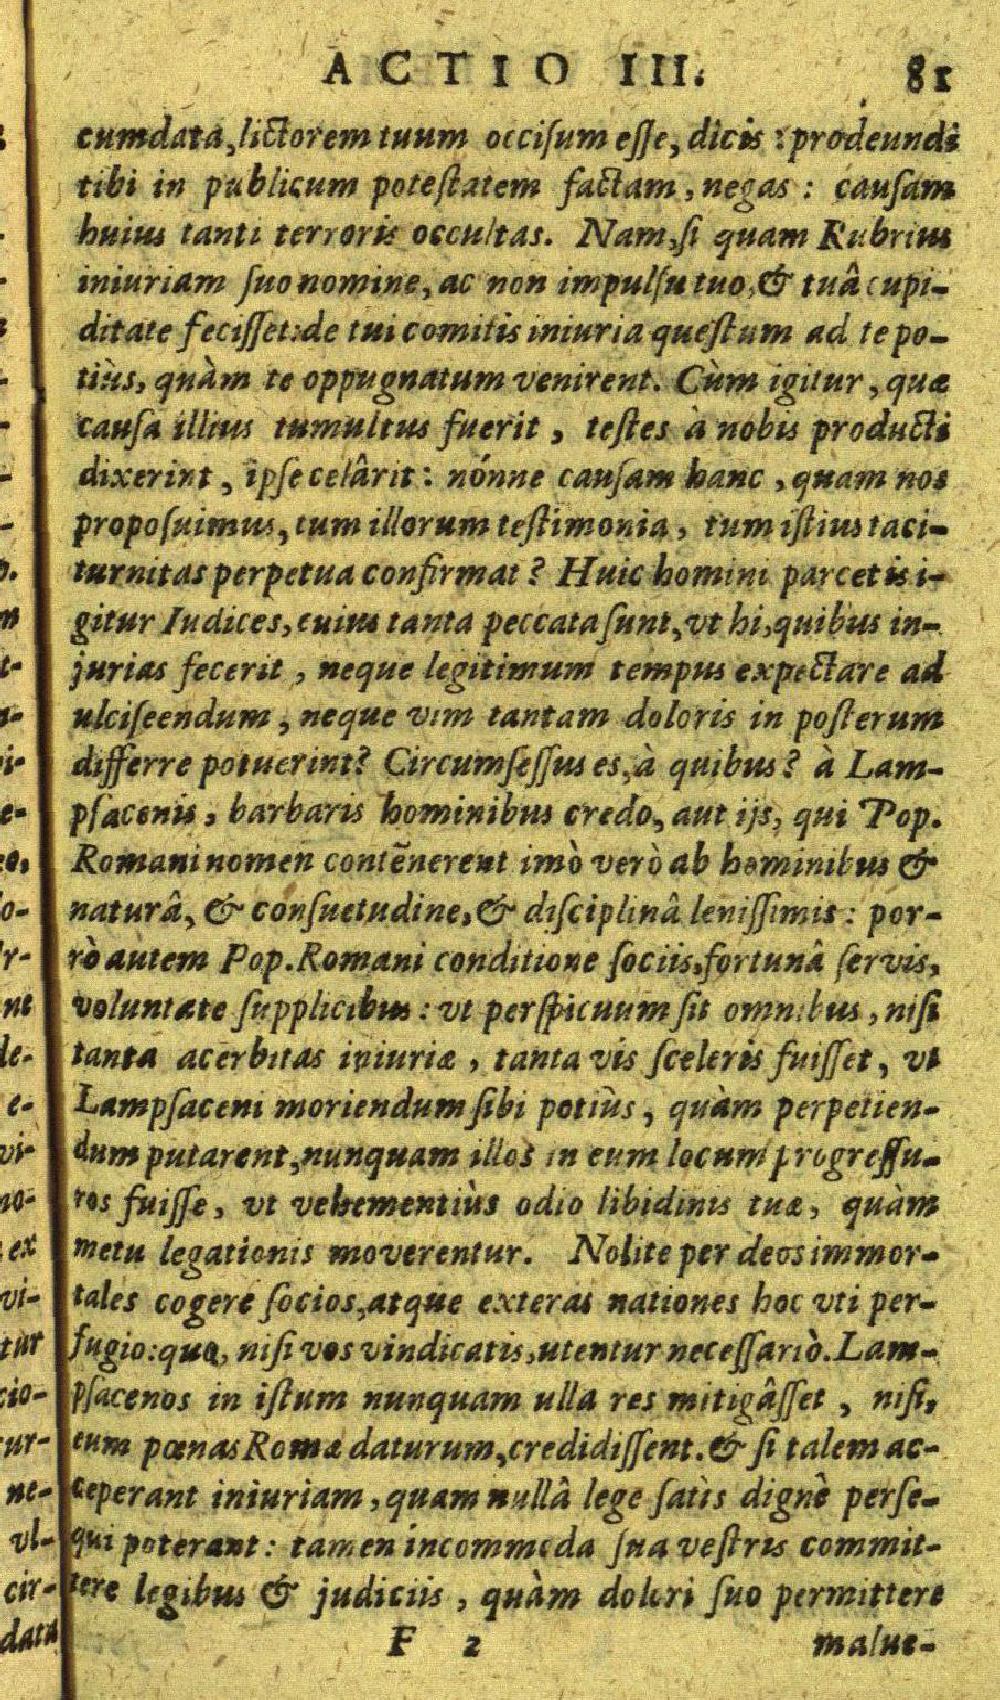 ACTIO III. 81
cumdata, lictorem tuum occiſum eſſe, dicis: prodeundi
tibi in publicum poteſtatem factam, negas: cauſam
huius tanti terroris occultas. Nam, ſi quam Rubrius
iniuriam ſuo nomine, ac non impulſu tuo, & tuâ cupi-
ditate feciſſet: de tui comitis iniuria queſtum ad te po-
tiùs, quàm te oppugnatum venirent. Cùm igitur, quæ
cauſa illius tumultus fuerit, teſtes à nobis producti
dixerint, ipſe celârit: nónne cauſam hanc, quam nos
propoſuimus, tum illorum teſtimonia, tum iſtius taci-
turnitas perpetua confirmat? Huic homini parcetis i-
gitur Iudices, cuius tanta peccata ſunt, vt hi, quibus in-
jurias fecerit, neque legitimum tempus expectare ad
ulciſeendum, neque vim tantam doloris in poſterum
differre potuerint? Circumſeſſus es, à quibus? à Lam-
pſacenis, barbaris hominibus credo, aut ijs, qui Pop.
Romani nomen contēnerent imò verò ab hominibus &
naturâ, & conſuetudine, & diſciplinâ leniſſimis: por-
rò autem Pop. Romani conditione ſociis, fortunâ ſervis,
voluntate ſupplicibus: vt perſpicuum ſit omnibus, niſi
tanta acerbitas iniuriæ, tanta vis ſceleris fuiſſet, vt
Lampſaceni moriendum ſibi potiùs, quàm perpetien-
dum putarent, nunquam illos in eum locum progreſſu-
ros fuiſſe, vt vehementiùs odio libidinis tuæ, quàm
metu legationis moverentur. Nolite per deos immor-
tales cogere ſocios, atque exteras nationes hoc vti per-
fugio: quo, niſi vos vindicatis, utentur neceſſariò. Lam-
pſacenos in iſtum nunquam ulla res mitigâſſet, niſi,
eum pœnas Romæ daturum, credidiſſent. & ſi talem ac-
ceperant iniuriam, quam nullâ lege ſatis dignè perſe-
qui poterant: tamen incommoda ſua veſtris commit-
tere legibus & judiciis, quàm dolori ſuo permittere
F 2 malue-